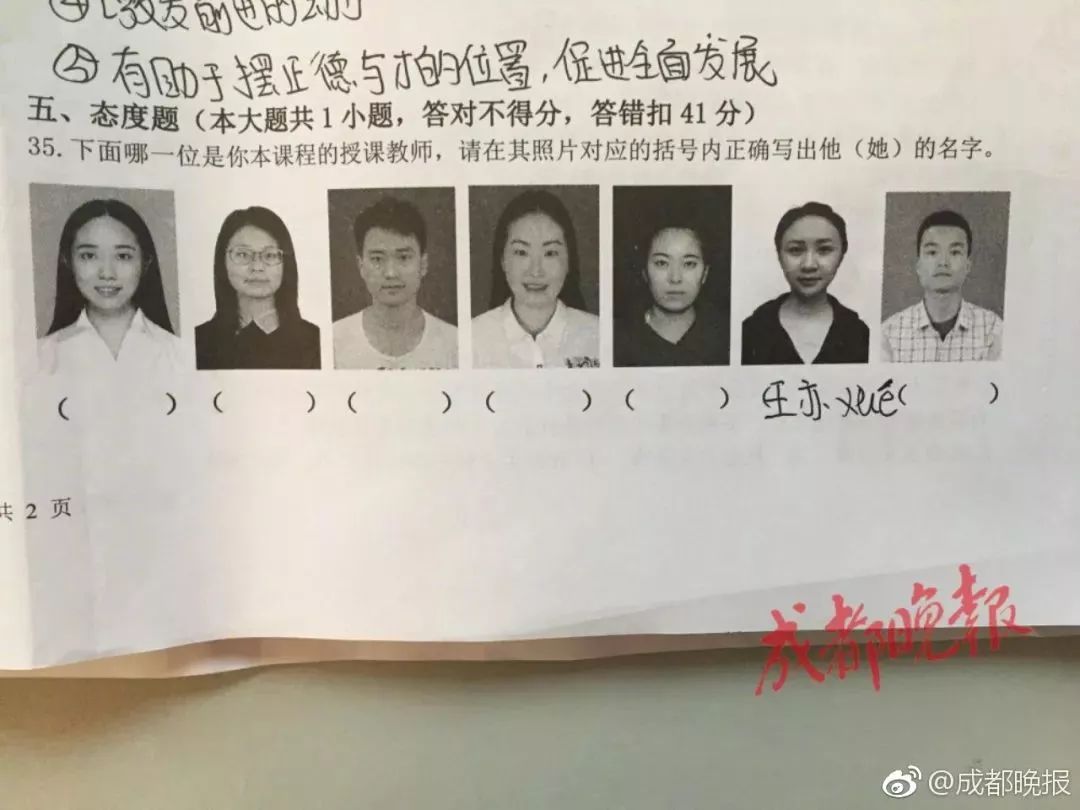 激发前进的动力
⑤ 有助于摆正德与才的位置,促进全面发展
五、态度题（本大题共 1 小题，答对不得分，答错扣 41 分）
35. 下面哪一位是你本课程的授课教师，请在其照片对应的括号内正确写出他（她）的名字。
（ ） （ ） （ ） （ ） （ ） 王亦xué（ ）
共 2 页
成都晚报
@成都晚报